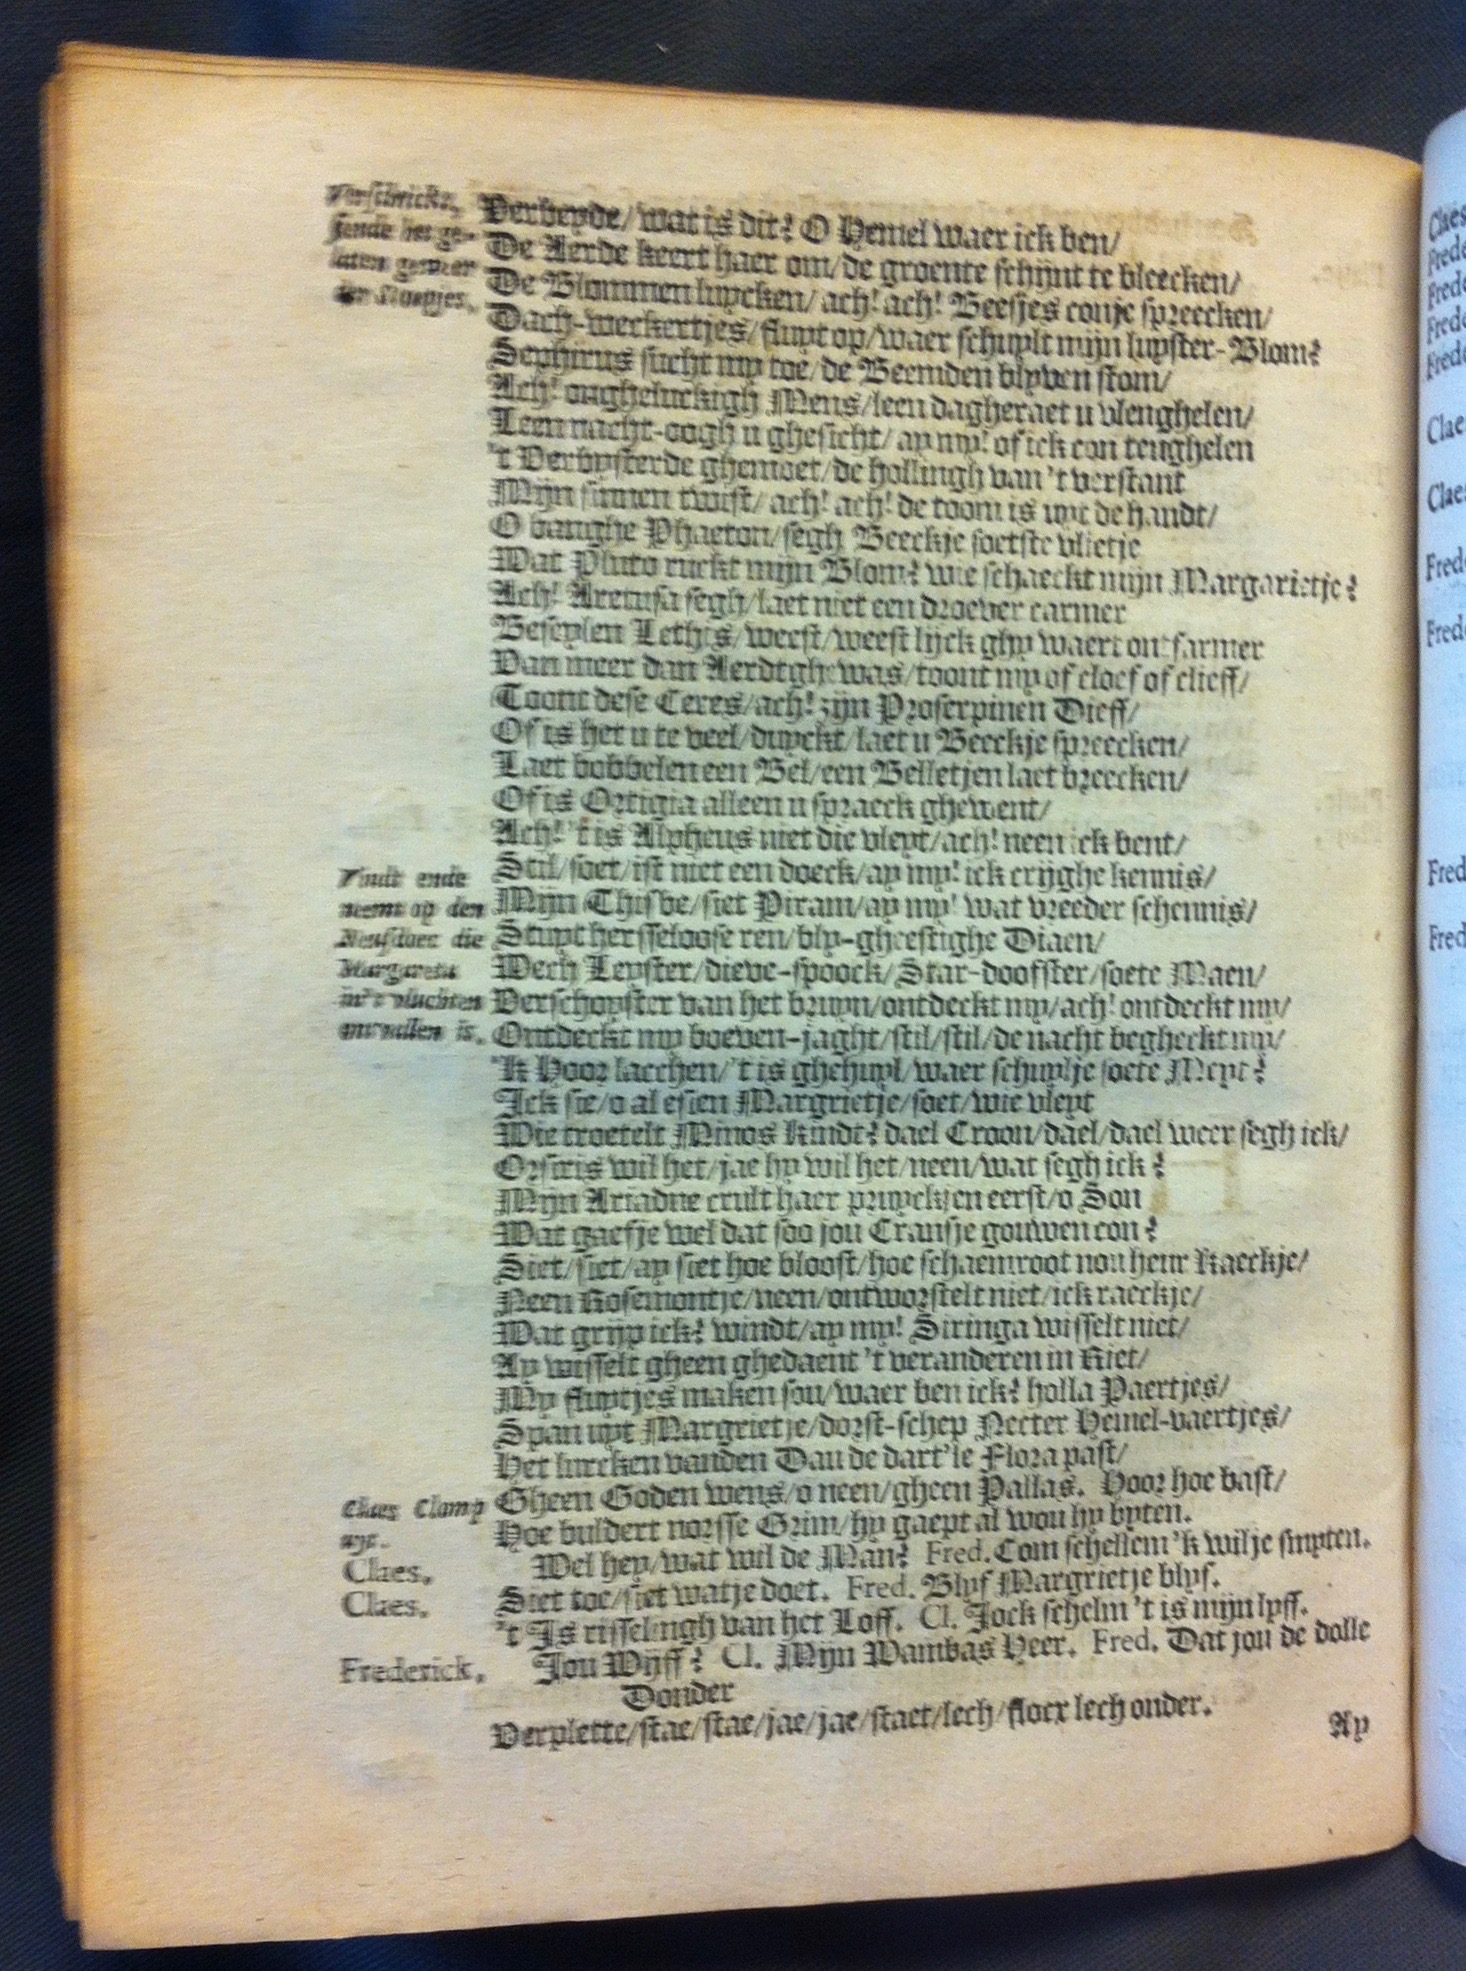 Verschrickt,
siende het ge-
laten
Verbeyde/ wat is dit? O Hemel waer ick ben/
De Aerde keert haer om/ de groente schijnt te bleecken/
De Blommen luycken/ ach! ach! Beesjes conje spreecken/
Dach-werkertjes/ sluyt op/ waer schuylt mijn luyster-Blom?
Sephirus sucht my toe/ de Beemden blyven stom/
Ach! ongheluckigh Mens/ leen dagheraet u vlenghelen/
Leen nacht-oogh u ghesicht/ ay my! of ick con tenghelen
't Verbysterde ghemoet/ de hollingh van 't verstant
Mijn sinnen twist/ ach! ach! de toom is uyt de handt/
O banghe Phaeton/ segh Beeckje soetste vlietje
Wat Pluto ruckt mijn Blom? wie schaeckt mijn Margarietje?
Ach! Aretusa segh/ laet niet een droever carmer
Beseylen Lethis/ weest/ weest lijck ghy waert ontfarmer
Van meer dan Aerdtgh was/ toont my of cloef of clieff/
Toont dese Ceres/ ach! zijn Proserpinen Dieff/
Of is het u te veel/ duyckt/ laet u Beeckje spreecken/
Laet bobbelen een Bel/ een Belletjen laet breecken/
Of is Ortigia alleen u spraeck ghewent/
Ach! 't is Alpheus niet die vleyt/ ach! neen ick bent/
Stil/ soet/ ist niet een doeck/ ay my! ick crijghe kennis/
Vindt ende
neemt op den
Neusdoec die
Margareta
in't vluchten
ontvallen is.
Mijn Thisbe/ siet Piram/ ay my! wat vreeder schennis/
Stuyt hersseloose ren/ bly-gheestighe Diaen/
Wech Leyster/ dieve-spoock/ Star-doofster/ soete Maen/
Verschoyster van het bruyn/ ontdeckt my/ ach! ontdeckt my/
Ontdeckt my boeven-jaght/ stil/ stil/ de nacht begheckt my/
'k Hoor lacchen/ 't is ghehuyl/ waer schuylje soete Meyt?
Ick sie/ o al esien Margrietje/ soet/ wie vleyt
Wie troetelt Minos Kindt? dael Croon/ dael/ dael weer segh ick/
Orsiris wil het/ jae hy wil het/ neen/ wat segh ick?
Mijn Ariadne crult haer pruyckjen eerst/ o Son
Wat gaefje wel dat soo jou Cransje gouwen con?
Siet/ siet/ ay siet hoe bloost/ hoe schaemroot nou heur Kaeckje/
Neen Rosemontje/ neen/ ontworstelt niet/ ick raeckje/
Wat grijp ick? windt/ ay my! Siringa wisselt niet/
Ay wisselt gheen ghedaent 't veranderen in Riet/
My fluytjes maken sou/ waer ben ick? holla Paertjes/
Span uyt Margrietje/ dorst-schep Necter Hemel-vaertjes/
Het lurcken vanden Dau de dart'le Flora past/
Gheen Goden wens/ o neen/ gheen Pallas. Hoor hoe bast/
Claes Clamp
uyt.
Hoe buldert norsse Grim/ hy gaept al wou hy byten.
Claes. Wel hey/ wat wil de Man? Fred. Com schellem 'k wil je smyten.
Claes. Siet toe/ siet watje doet. Fred. Blyf Margrietje blyf.
't Is risselingh van het Loff. Cl. Jock schelm 't is mijn lyff.
Frederick. Jou Wijff? Cl. Mijn Wambas Heer. Fred. Dat jou de dolle
Donder
Verplette/ stae/ stae/ jae/ jae/ staet/ lech/ flocx lech onder.
Ay